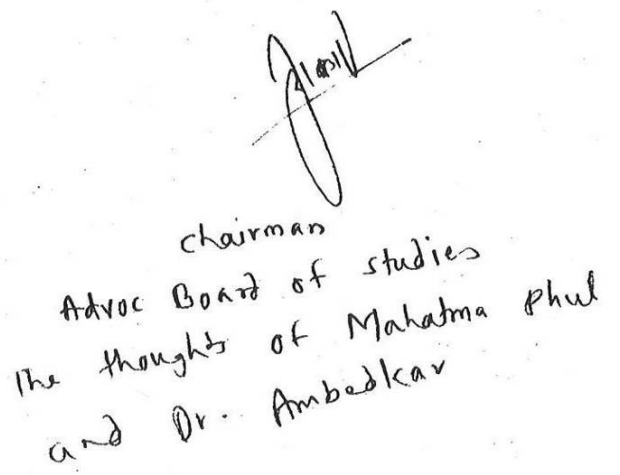 chairman
Advoc Board of studies
The thoughts of Mahatma Phul
and Dr. Ambedkar